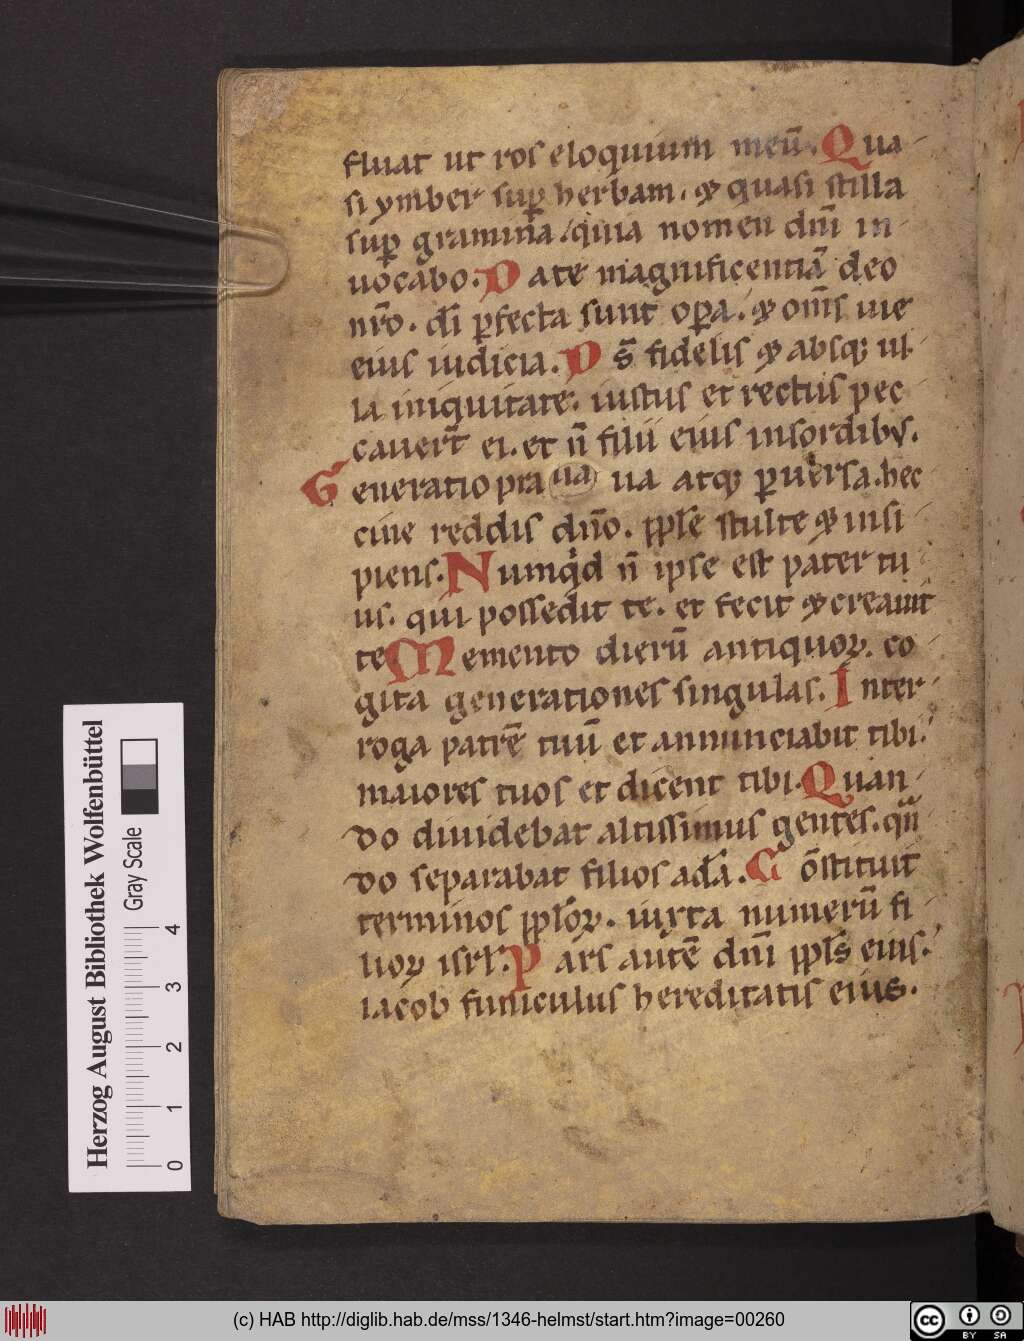 fluat ut ros eloquium meū. Qua
si ymber suꝑ herbam. ⁊ quasi stilla
suꝑ gramina / quia nomen dn̄i in
uocabo. Date magnificentiā deo
nr̄o. dī ꝑfecta sunt oꝑa. ⁊ om̄s uie
eius iudicia. Ds̄ fidelis ⁊ absqꝫ ul
la iniquitate. iustus et rectus pec
cauert̄ ei. et n̄ filii eius insordibus.
Generatio praua ua atqꝫ ꝑuersa. hec
cine reddis dn̄o. pple stulte ⁊ insi
piens. Numqͥd n̄ ipse est pater tu
us. qui possedit te. et fecit ⁊ creauit
te. Memento dierū antiquoꝝ. co
gita generationes singulas. Inter
roga patrē tuū et annunciabit tibi.
maiores tuos et dicent tibi. Quan
do diuidebat altissimus gentes. qn̄
do separabat filios adā. Cōstituit
terminos pploꝝ. iuxta numerū fi
lioꝝ isrl. Pars autē dn̄i ppls eius.
iacob funiculus hereditatis eius.
Herzog August Bibliothek Wolfenbüttel
Gray Scale
0 1 2 3 4
(c) HAB http://diglib.hab.de/mss/1346-helmst/start.htm?image=00260
cc BY SA